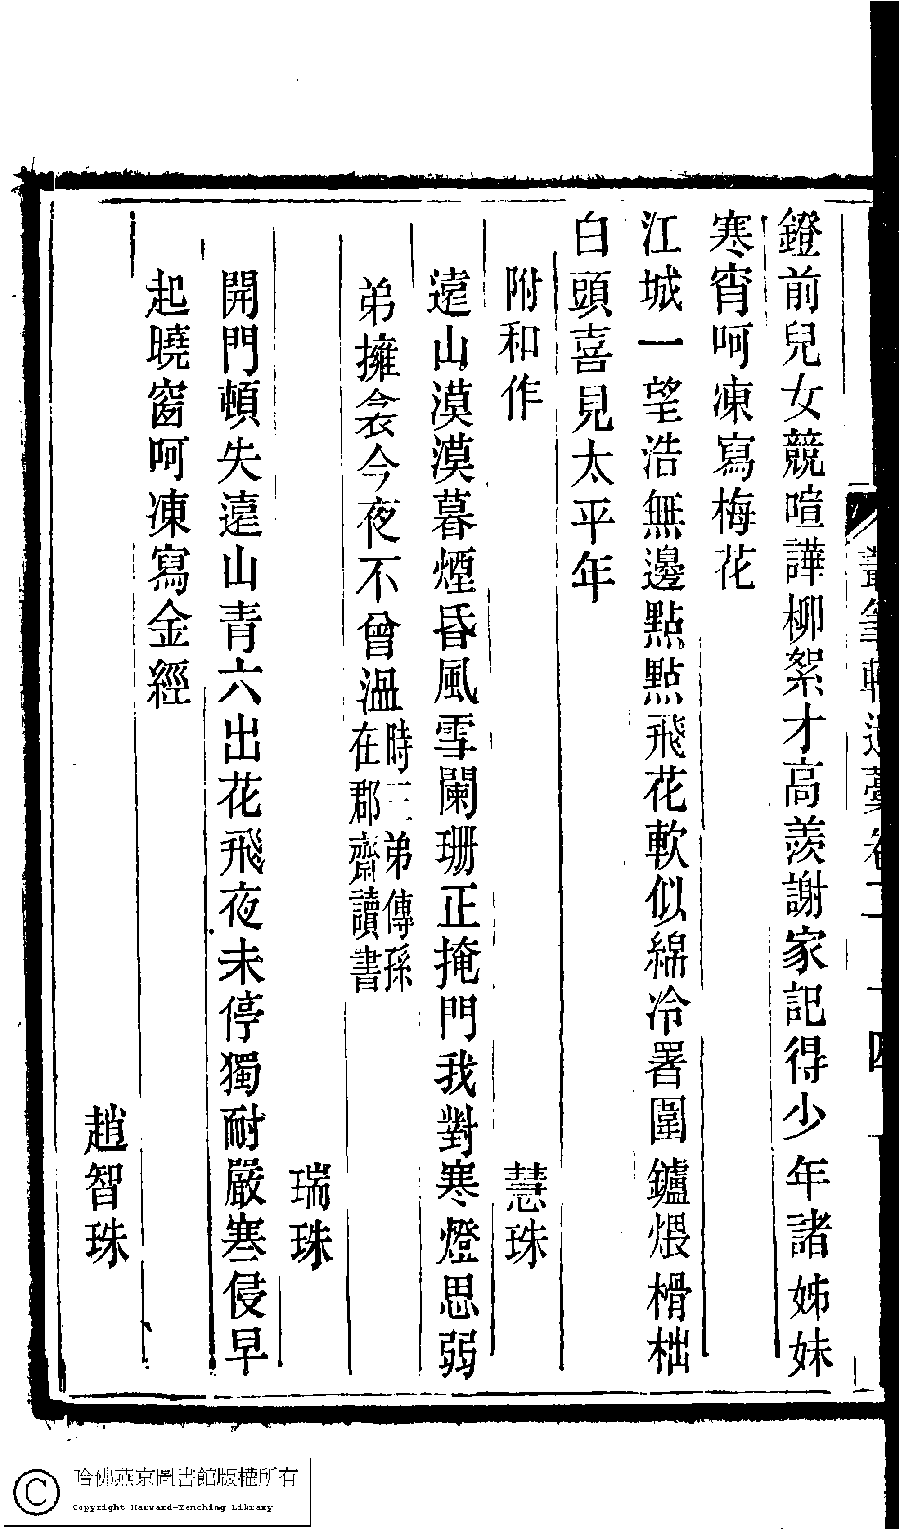 鐙前兒女競喧譁柳絮才高羨謝家記得少年諸姊妹
寒宵呵凍寫梅花
江城一望浩無邊點點飛花軟似綿冷署圍鑪煨榾柮
白頭喜見太平年
附和作
慧珠
遠山漠漠暮煙昏風雪闌珊正掩門我對寒燈思弱
弟擁衾今夜不曾溫
時三弟傳孫
在郡齋讀書
瑞珠
開門頓失遠山青六出花飛夜未停獨耐嚴寒侵早
起曉窗呵凍寫金經
趙智珠
哈佛燕京圖書館版權所有
Copyright Harvard-Yenching Library